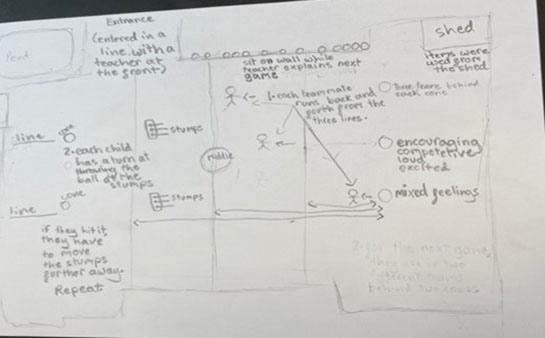 Entrance
(entered in a
line with a
teacher at
the front)
Pond
shed
items were
used from
the shed
sit on wall while
teacher explains next
game
1. each teammate
runs back and
forth from the
three lines.
three teams behind
each cone
line
cone
2. each child
has a turn at
throwing the
ball at the
stumps
stumps
middle
encouraging
competetive
loud
excited
cone
line
stumps
mixed feelings
if they hit it
they have
to move
the stumps
further away.
Repeat
2. for the next game,
they are in two
different teams
behind two cones